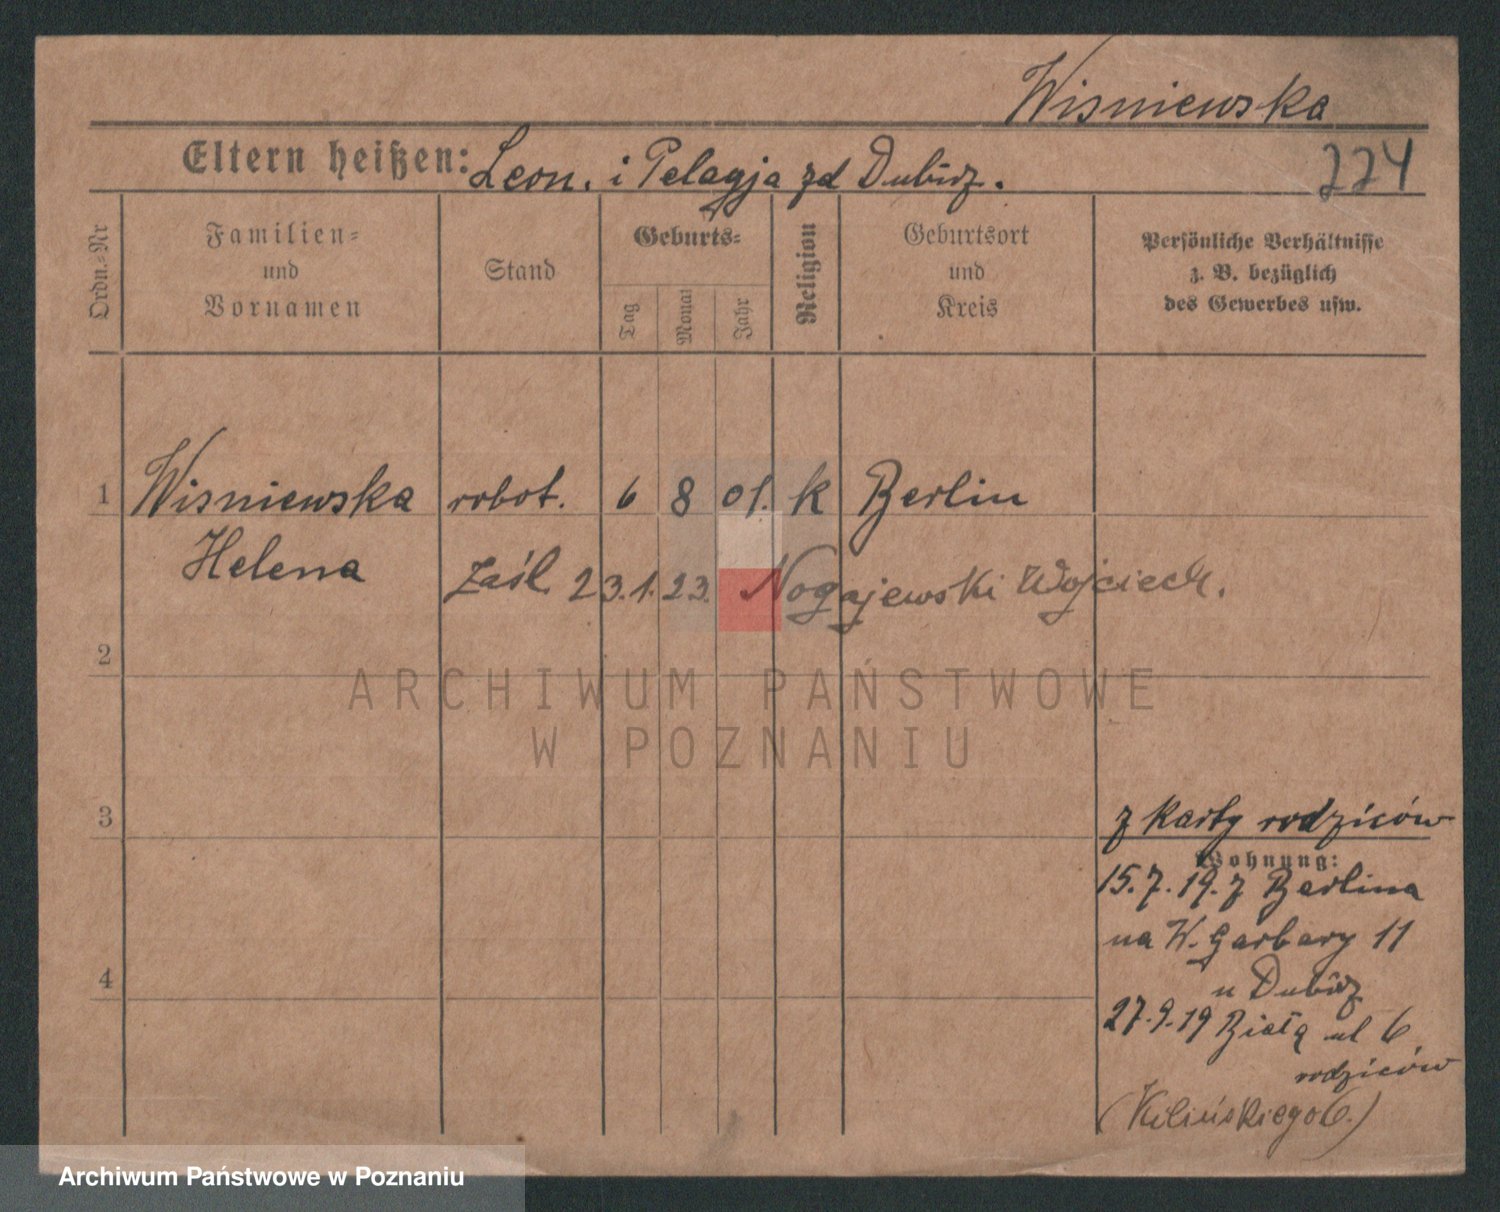 Wisniewska
Eltern heißen: Leon. i Pelagja zd Dubisz.
224
Ordn.-Nr
Familien- und Vornamen
Stand
Geburts-
Tag
Monat
Jahr
Religion
Geburtsort und Kreis
Persönliche Verhältnisse
z. B. bezüglich
des Gewerbes usw.
1 Wisniewska robot. 6 8 01. k Berlin
Helena
Zaśl. 23.1.23. Nogajewski Wojciech.
2
ARCHIWUM PAŃSTWOWE
W POZNANIU
3
z karty rodziców
Wohnung:
15.7.19. z Berlina
na W. Garbary 11
u Dubisz
4
27.9.19 Białą ul 6
rodziców
(Kilińskiego 6.)
Archiwum Państwowe w Poznaniu